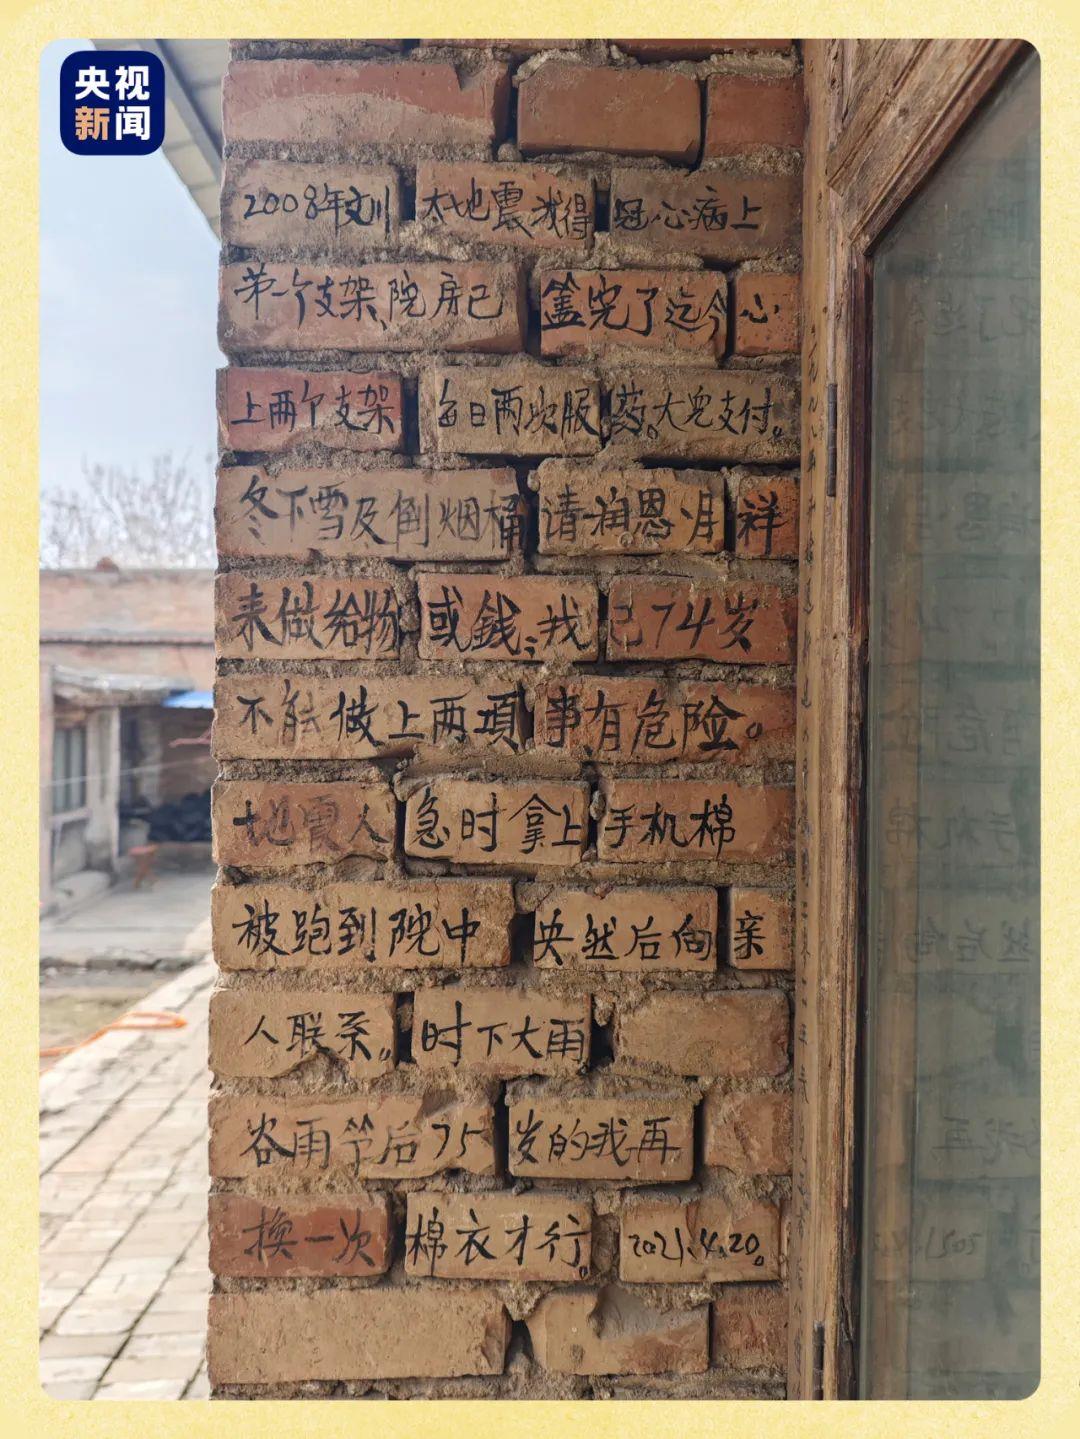 央视
新闻
2008年汶川大地震我得冠心病上
第一个支架,院房已盖完了迄今心
上两个支架每日两次服药。大儿支付。
冬下雪及倒烟桶请润恩月祥
来做给物或錢;我已74岁
不能做上两項事,有危险。
地震人急时拿上手机棉
被跑到院中央然后向亲
人联系。时下大雨
谷雨节后75岁的我再
换一次棉衣才行。2021.4.20。